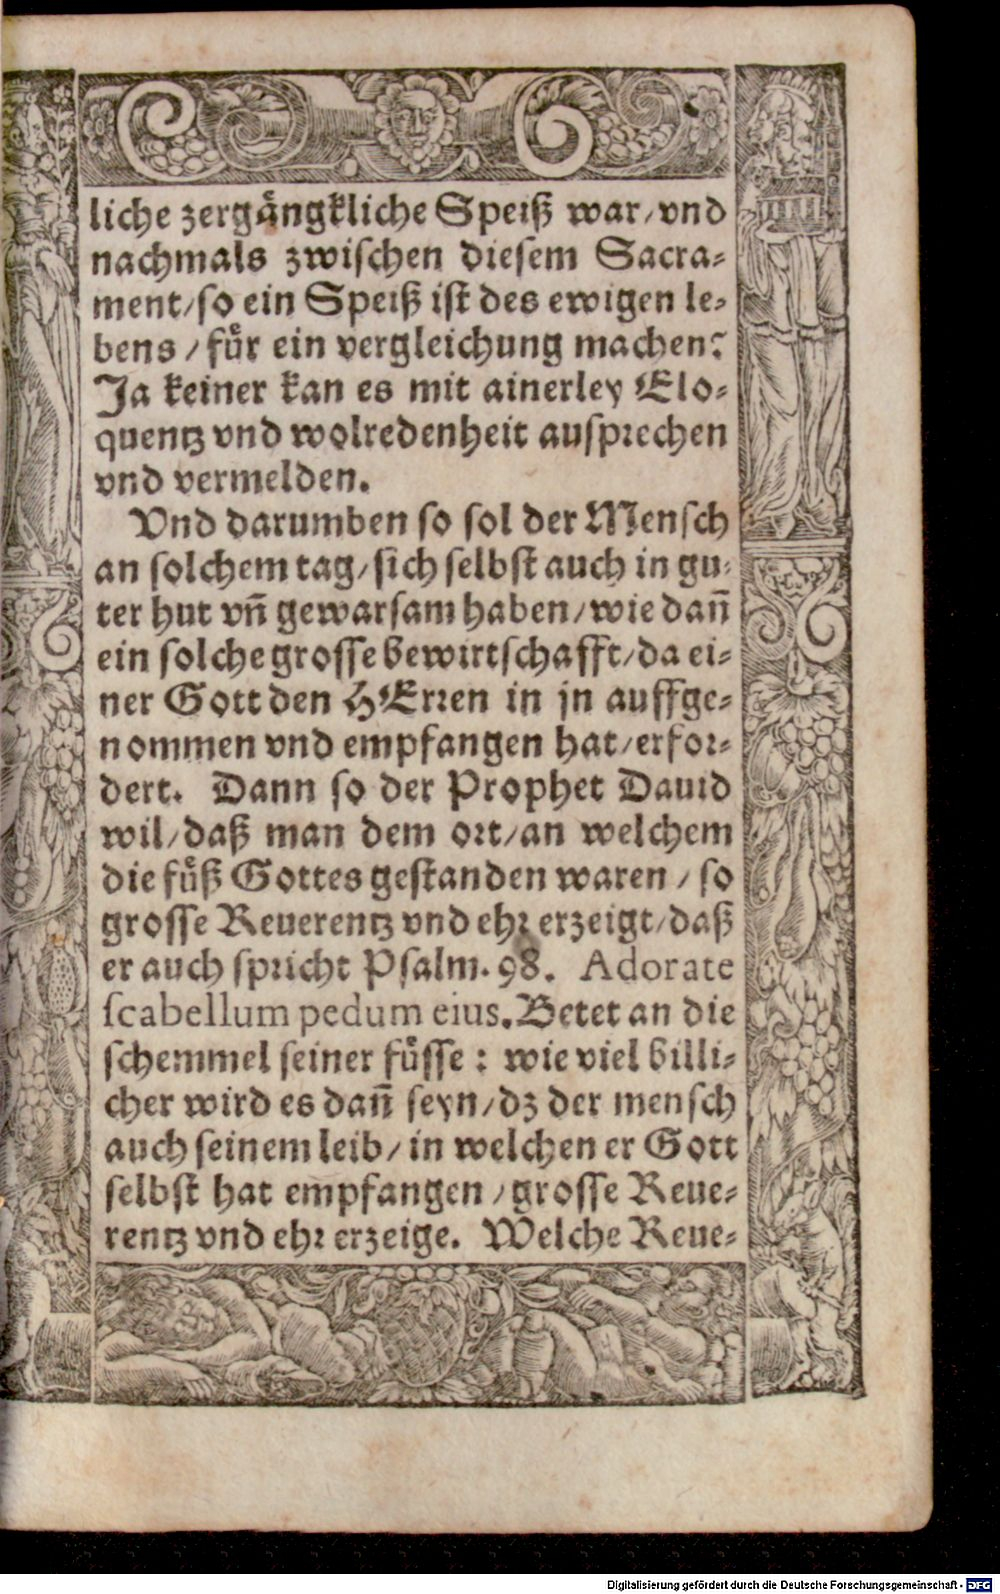 liche zergångkliche Speiß war/vnd
nachmals zwischen diesem Sacra-
ment/so ein Speiß ist des ewigen le-
bens / fuͤr ein vergleichung machen?
Ja keiner kan es mit ainerley Elo-
quentz vnd wolredenheit ausprechen
vnd vermelden.
Vnd darumben so sol der Mensch
an solchem tag/sich selbst auch in gu-
ter hut vñ gewarsam haben/wie dañ
ein solche grosse bewirtschafft/da ei-
ner Gott den HErren in jn auffge-
nommen vnd empfangen hat/erfor-
dert. Dann so der Prophet Dauid
wil/daß man dem ort/an welchem
die fuͤß Gottes gestanden waren / so
grosse Reuerentz vnd ehr erzeigt/daß
er auch spricht Psalm. 98. Adorate
scabellum pedum eius. Betet an die
schemmel seiner fuͤsse : wie viel billi-
cher wird es dañ seyn/dz der mensch
auch seinem leib/ in welchen er Gott
selbst hat empfangen / grosse Reue-
rentz vnd ehr erzeige. Welche Reue-
Digitalisierung gefördert durch die Deutsche Forschungsgemeinschaft - DFG